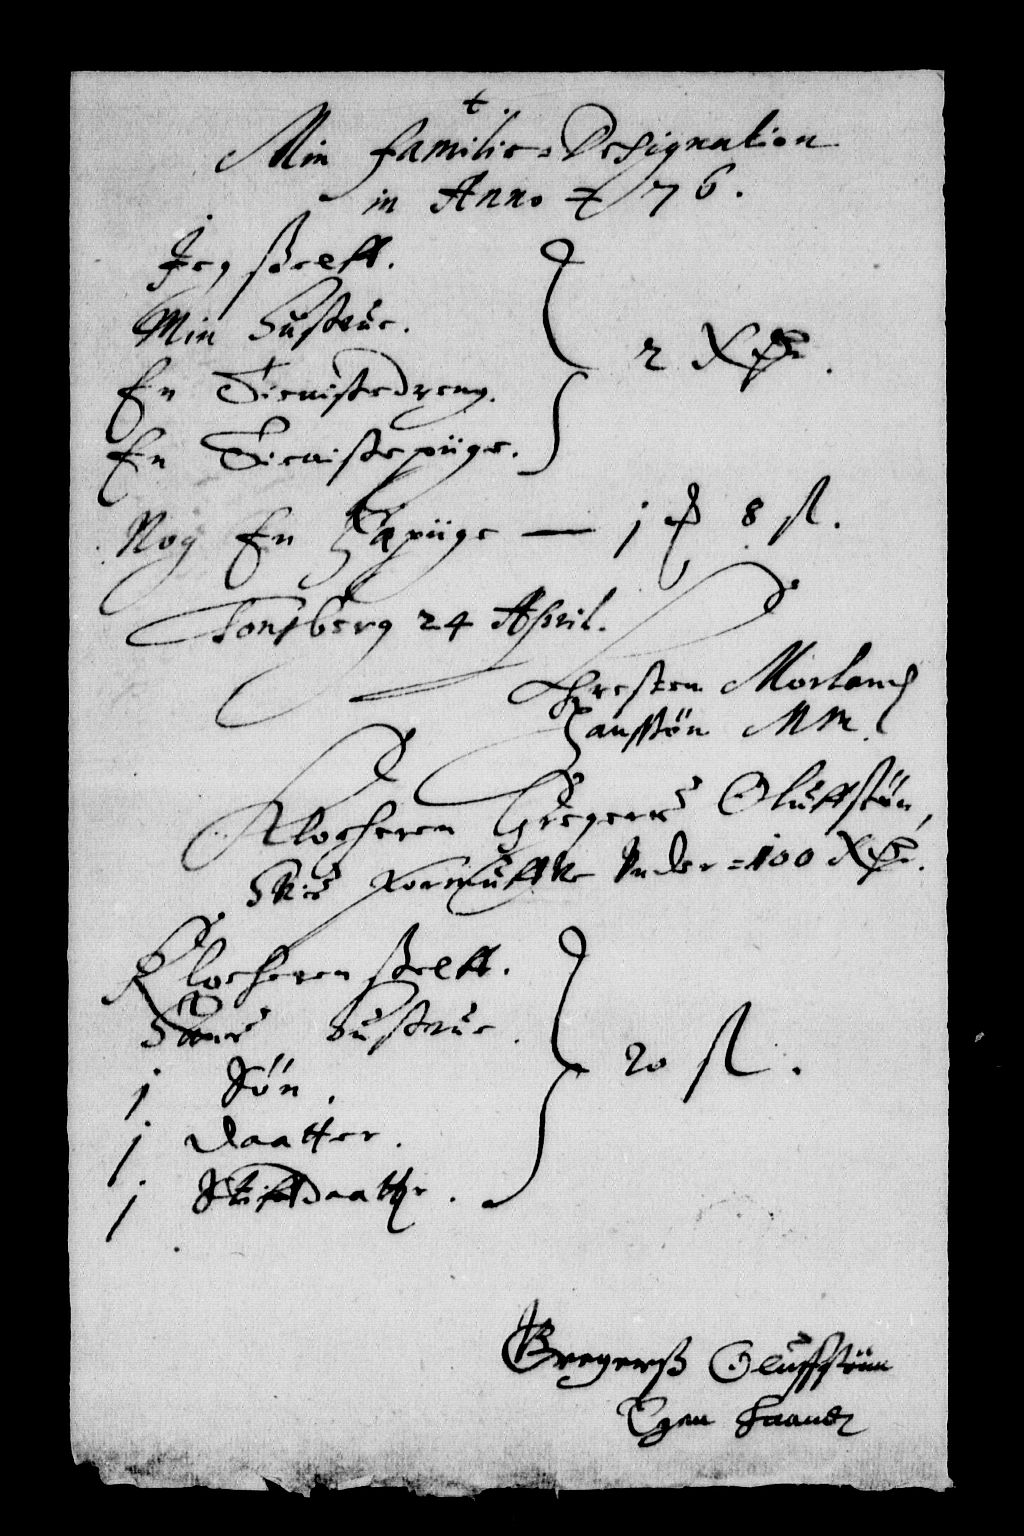 Min familie-Designation
in Anno 76.
Jeg sielff.
Min Hustrue.
En Tienistedreng.
En Tienistepiige.
2 Rdr.
Nog En piige — j 8 sl.
Tonsberg 24 April.
Christen Morland
Hanssøn Mm.
Klocheren Gregers Oluffsøn,
Hvis formuffue Under = 100 Rdr.
Klocheren sielff.
Hans Hustrue
j Søn.
j Daatter.
j Stifdaatter.
20 sl.
Gregerß Oluffsønn
Egen haandt